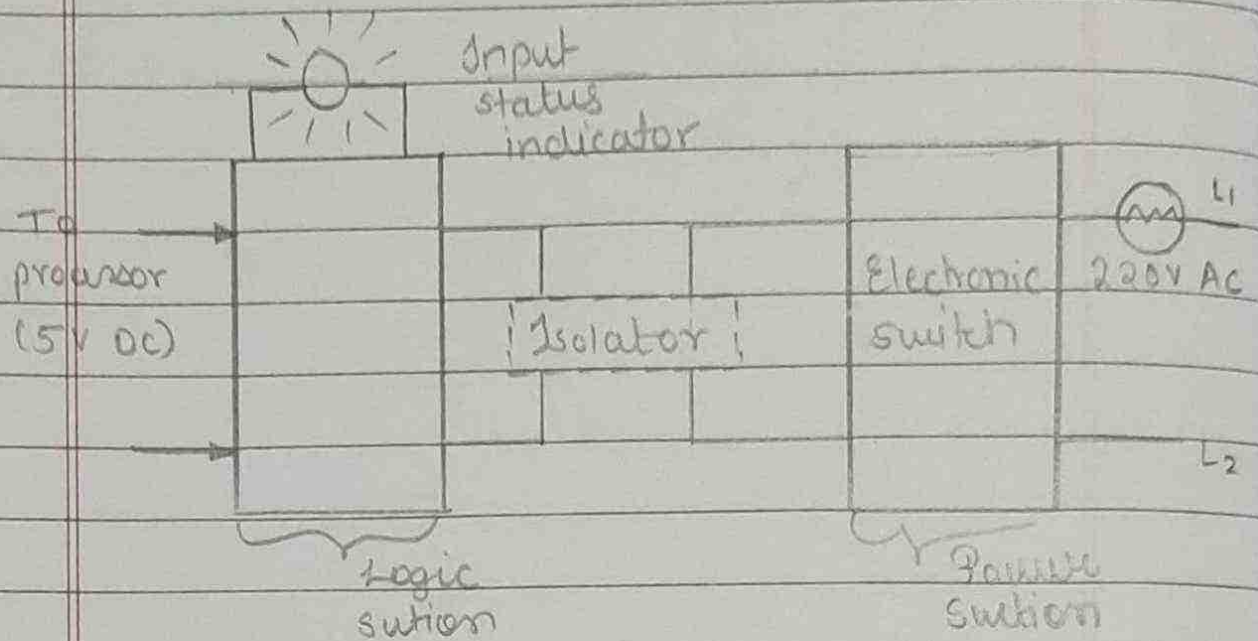 Input
status
indicator
To
processor
(5V DC)
Isolator
Electronic
switch
L1
220V AC
L2
Logic
sution
Power
Section